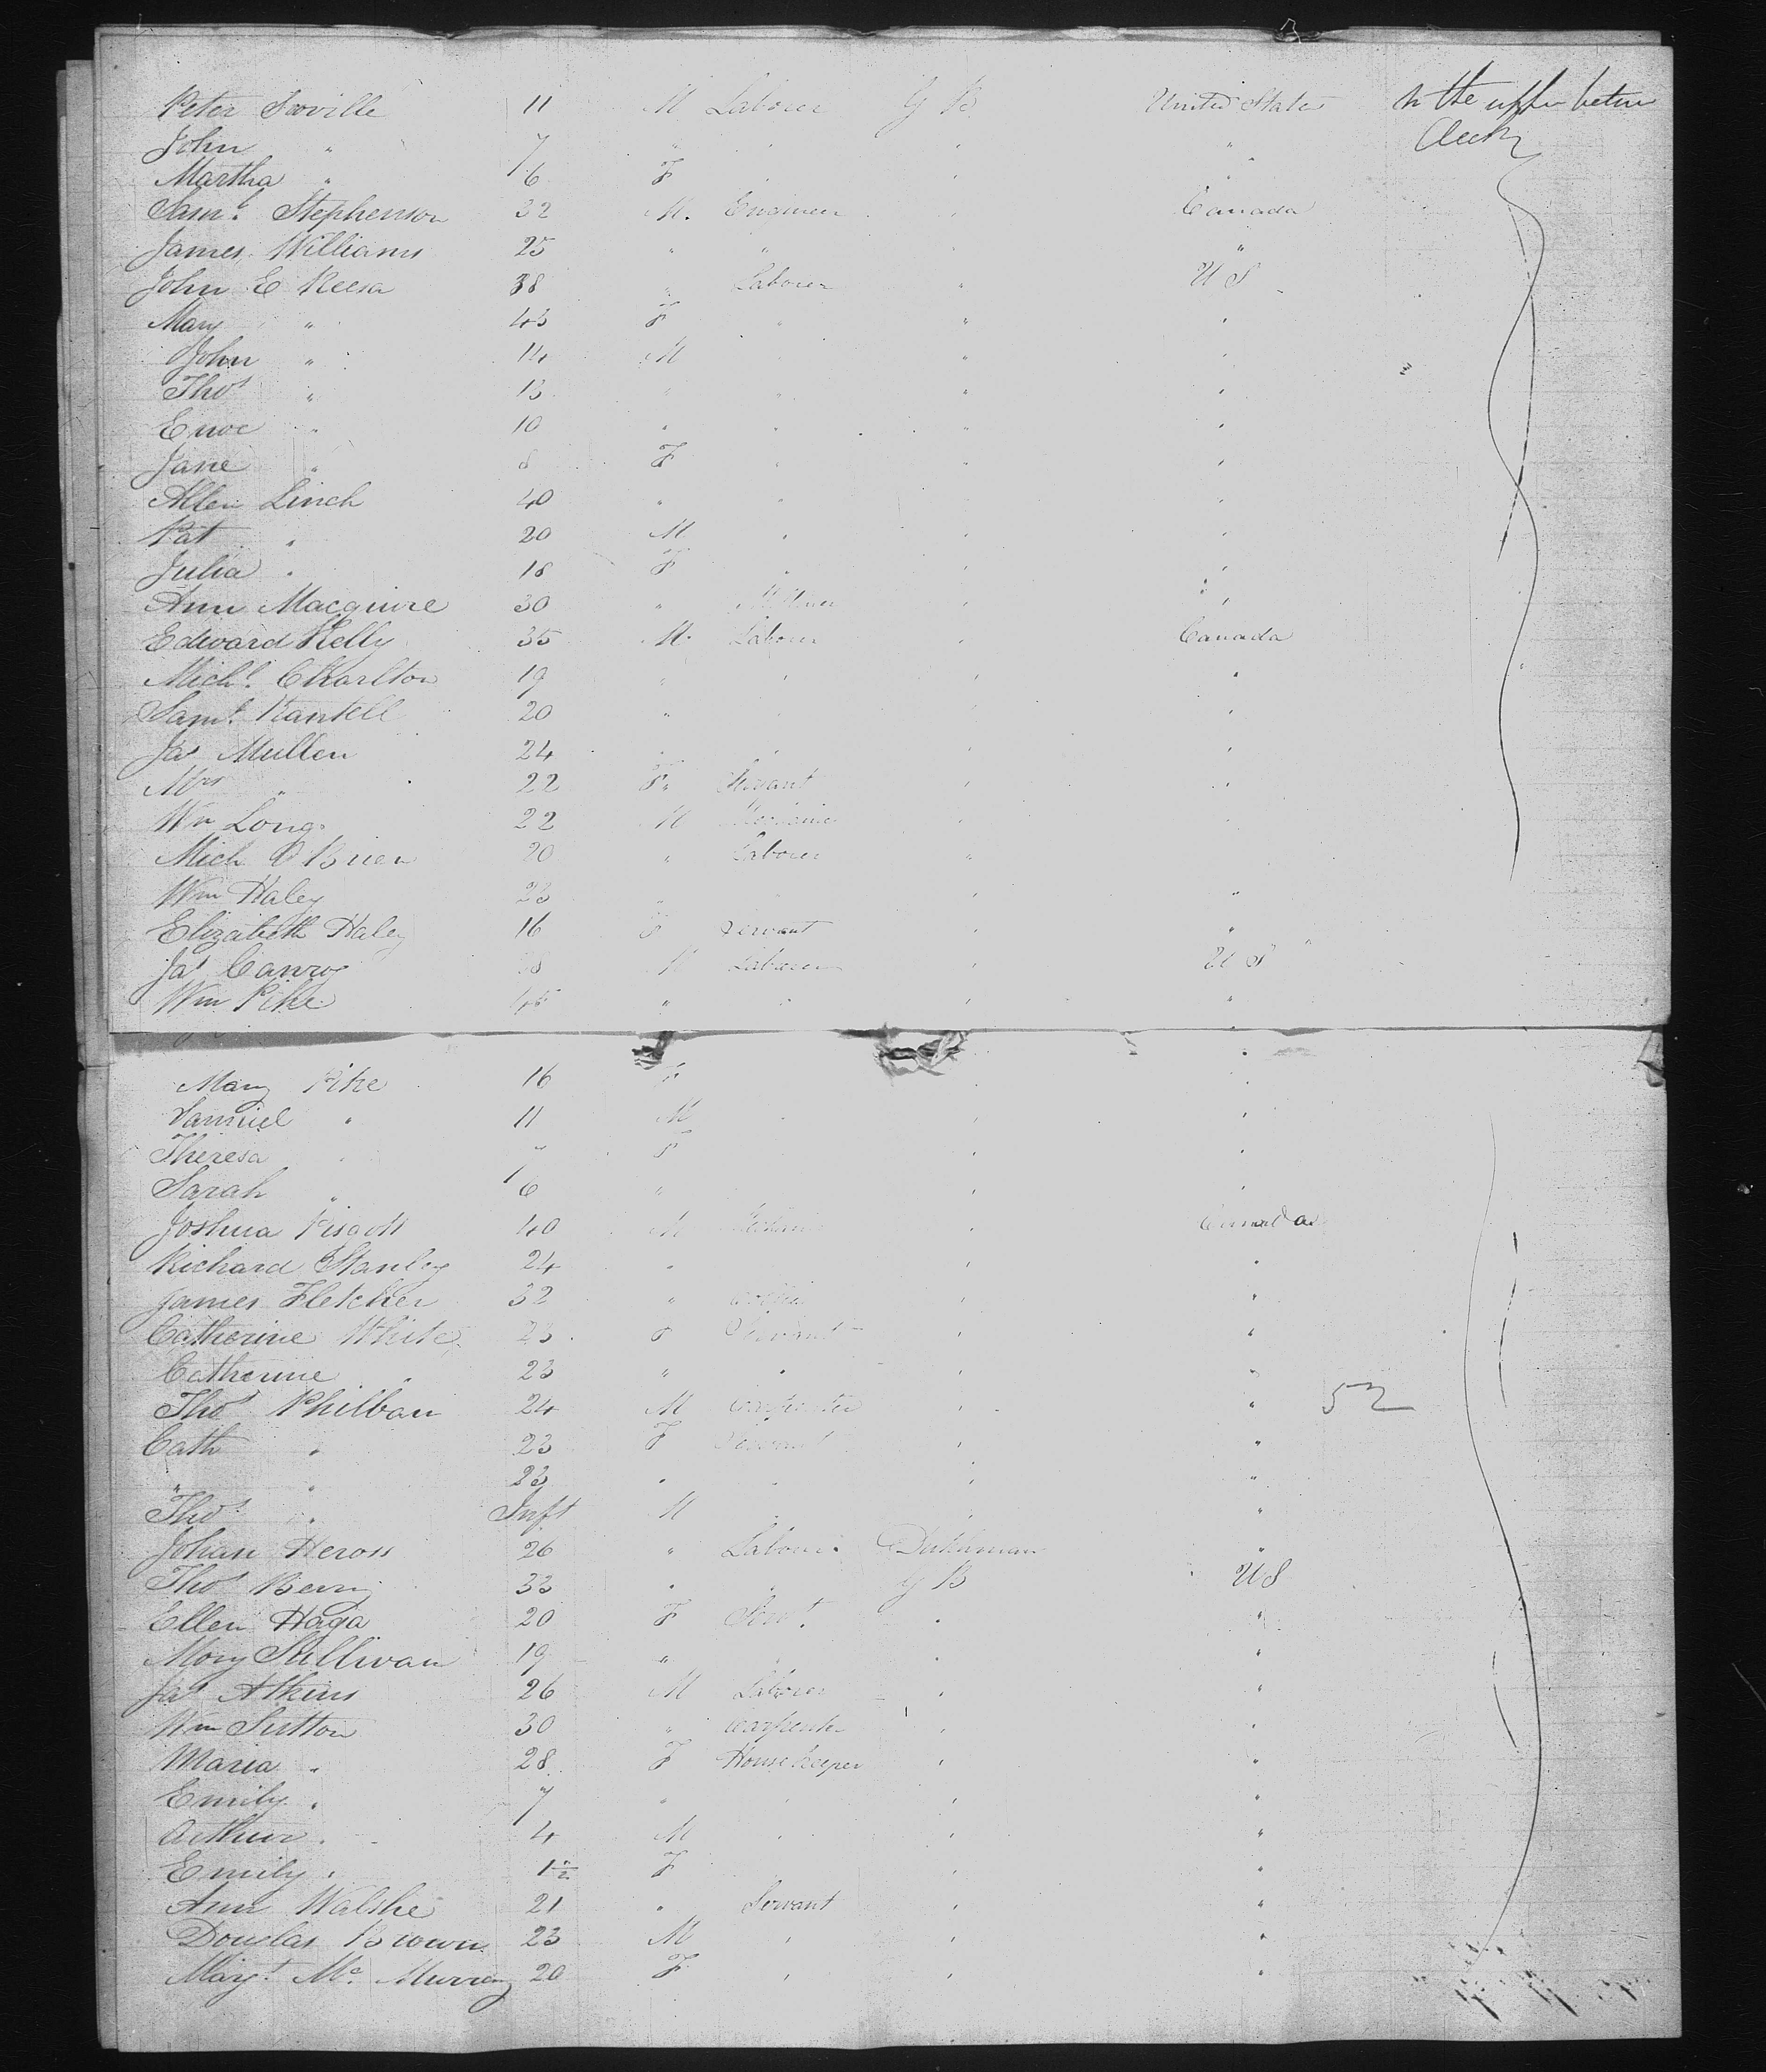 Peter Scoville 11 M Laborer G B United States In the upper between
John " 7 " " " " Decks
Martha " 6 F " " "
Saml. Stephenson 32 M. Engineer " Canada
James Williams 25 " " " "
John E Reesa 38 " Laborer " U S
Mary " 43 F " " "
John " 14 M " " "
Thos " 13 " " " "
Enoc " 10 " " " "
Jane " 8 F " " "
Allen Linch 40 " " "
Pat " 20 M " " "
Julia " 18 F " " "
Ann Macguire 30 " " "
Edward Kelly 35 M. Laborer " Canada
Michl. Charlton 19 " " " "
Saml. 20 " " "
Jas Mullen 24 " " " "
Mrs " 22 F " Servant " "
Wm Long 22 M Mechanic "
Mich O Brien 20 " Laborer "
Wm Haley 23 " " "
Elizabeth Haley 16 F Servant " "
Jas Canroy M Laborer " U S
Wm Pike 45 " " " "
Mary Pike 16 F " "
Samuel " 11 M " " "
Theresa " F " "
Sarah " 6 " " "
Joshua 40 M " Canada
Richard Stanley 24 " " "
James Fletcher 32 " " "
Catherine White 23 F Servant " "
Catherine " 23 " " "
Thos Philban 24 M Carpenter " " 52
Cath " 23 F Servant " "
" " 23 " " " "
Thos " Inft M " " "
Johan Heross 26 " Laborer Dutchman "
Thos Berry 33 " " G B U S
Ellen Haga 20 F Servt. " "
Mary Sullivan 19 " " " "
Jas Atkins 26 M Laborer " "
Wm Sutton 30 " Carpenter " "
Maria " 28 F House Keeper " "
Emily " 7 " " " "
Arthur " 4 M " " "
Emily " 1½ F " "
Ann Walshe 21 " Servant " "
Douglas Brown 23 M " " "
Margt. Mc. Murray 20 F " " "